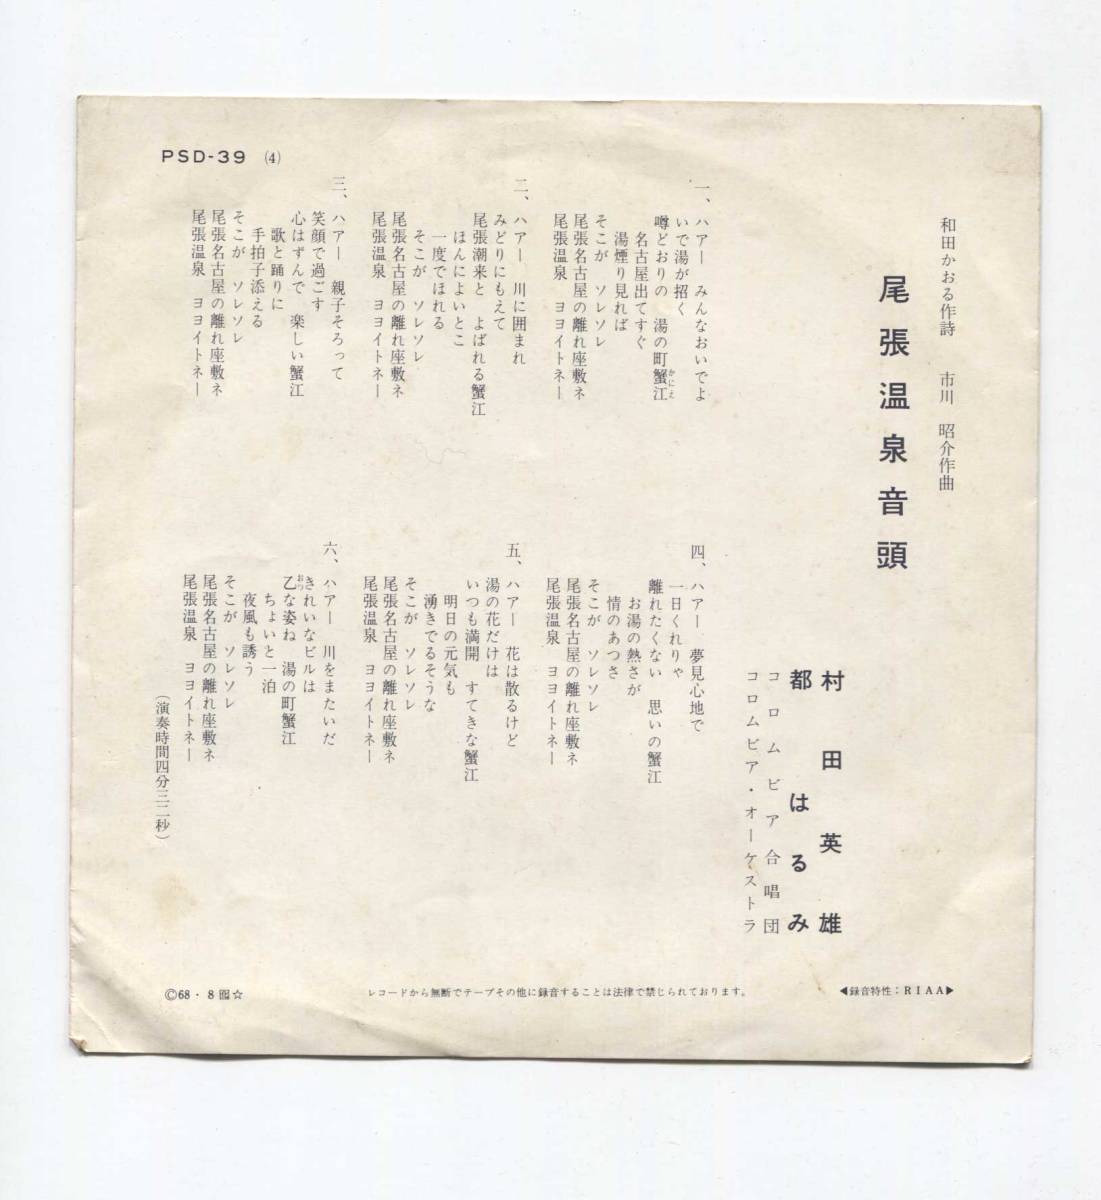 PSD-39 (4)
和田かおる作詩　市川　昭介作曲
尾張温泉音頭
村田英雄
都はるみ
コロムビア合唱団
コロムビア・オーケストラ
一、ハアー　みんなおいでよ
いで湯が招く
噂どおりの　湯の町蟹江
かにえ
名古屋出てすぐ
湯煙り見れば
そこが　ソレソレ
尾張名古屋の離れ座敷ネ
尾張温泉　ヨヨイトネー
二、ハアー　川に囲まれ
みどりにもえて
尾張潮来と　よばれる蟹江
ほんによいとこ
一度でほれる
そこが　ソレソレ
尾張名古屋の離れ座敷ネ
尾張温泉　ヨヨイトネー
三、ハアー　親子そろって
笑顔で過ごす
心はずんで　楽しい蟹江
歌と踊りに
手拍子添える
そこが　ソレソレ
尾張名古屋の離れ座敷ネ
尾張温泉　ヨヨイトネー
四、ハアー　夢見心地で
一日くれりゃ
離れたくない　思いの蟹江
お湯の熱さが
情のあつさ
そこが　ソレソレ
尾張名古屋の離れ座敷ネ
尾張温泉　ヨヨイトネー
五、ハアー　花は散るけど
湯の花だけは
いつも満開　すてきな蟹江
明日の元気も
湧きでるそうな
そこが　ソレソレ
尾張名古屋の離れ座敷ネ
尾張温泉　ヨヨイトネー
六、ハアー　川をまたいだ
きれいなビルは
乙な姿ね　湯の町蟹江
おつ
ちょいと一泊
夜風も誘う
そこが　ソレソレ
尾張名古屋の離れ座敷ネ
尾張温泉　ヨヨイトネー
（演奏時間四分三二秒）
Ⓒ68・8 ☆
レコードから無断でテープその他に録音することは法律で禁じられております。
◀録音特性：RIAA▶